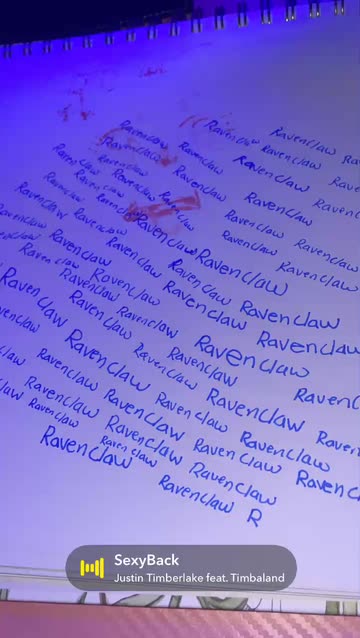 Ravenclaw Ravenclaw Ravenclaw
Ravenclaw Ravenclaw Ravenclaw
Ravenclaw Ravenclaw Ravenclaw
Ravenclaw Ravenclaw Ravenclaw Ravenclaw
Ravenclaw Ravenclaw Ravenclaw Ravenclaw
Ravenclaw Ravenclaw Ravenclaw Ravenclaw
Ravenclaw Ravenclaw Ravenclaw Ravenclaw
Ravenclaw Ravenclaw Ravenclaw Ravenclaw
Ravenclaw Ravenclaw Ravenclaw Ravenclaw
Ravenclaw Ravenclaw Ravenclaw Ravenclaw
Ravenclaw Ravenclaw Ravenclaw Ravenclaw
Ravenclaw Ravenclaw Ravenclaw Ravenclaw
Ravenclaw Ravenclaw Ravenclaw
Ravenclaw R
SexyBack
Justin Timberlake feat. Timbaland